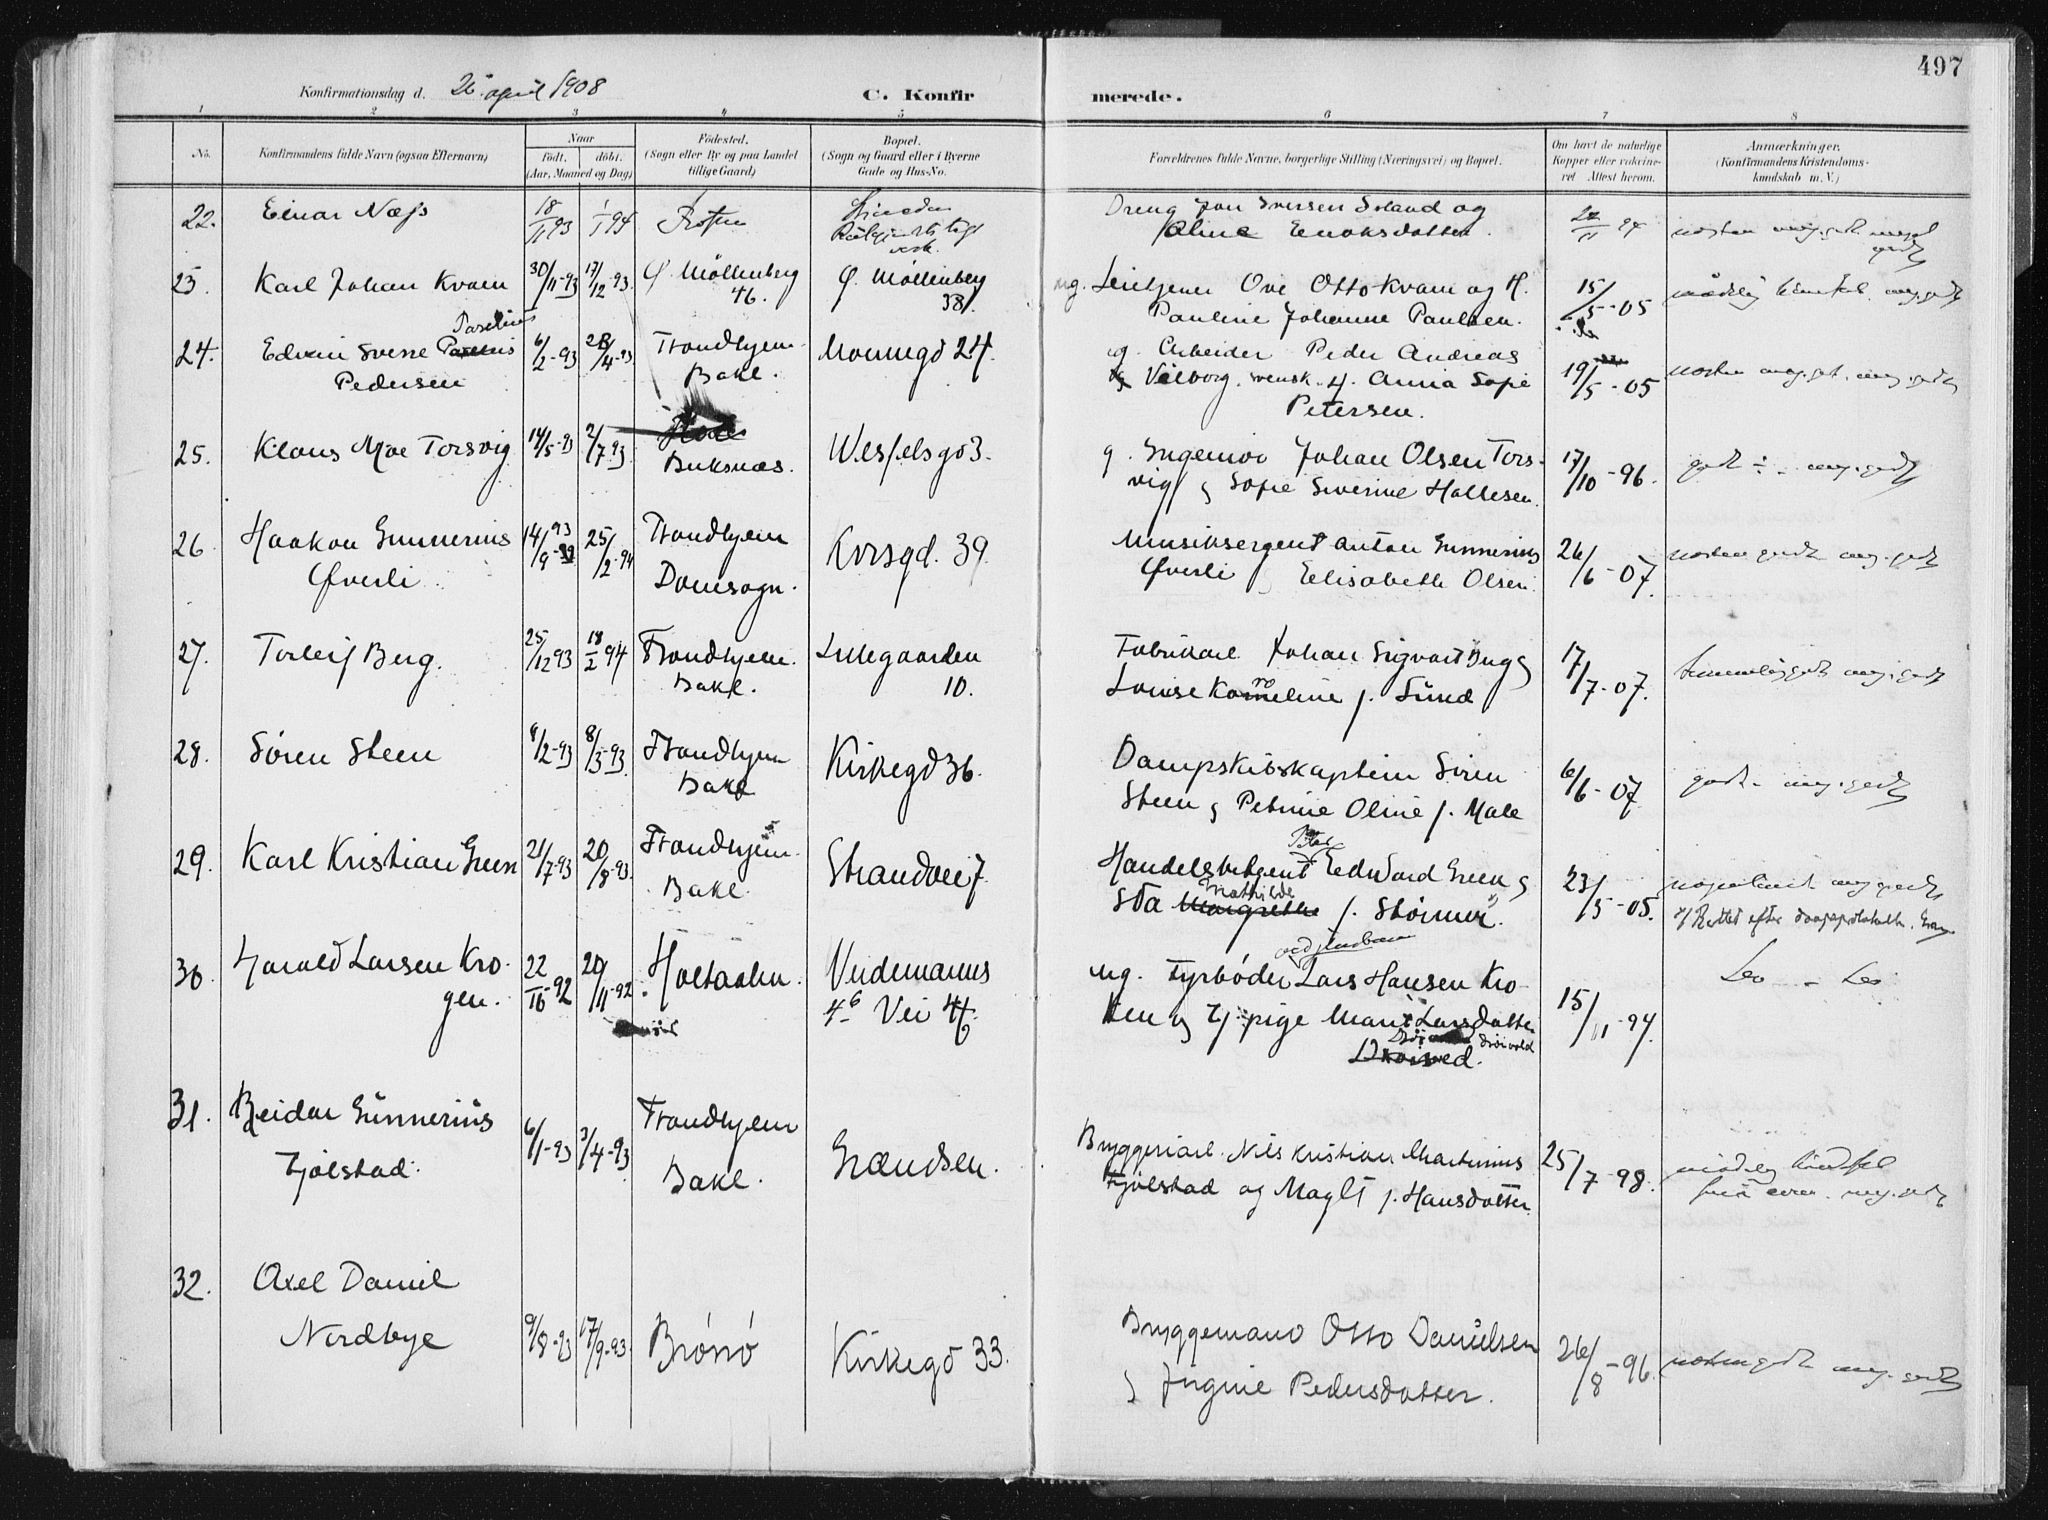 497
Konfirmationsdag d. 26 april 1908
C. Konfirmerede.
1 2 3 4 5 6 7 8
No.
Konfirmandens fulde Navn (ogsaa Efternavn)
Naar
födt. döbt.
(Aar, Maaned og Dag)
Födested.
(Sogn eller By og paa Landet
tillige Gaard)
Bopæl.
(Sogn og Gaard eller i Byerne
Gade og Hus-No.
Forældrenes fulde Navne, borgerlige Stilling (Næringsvei) og Bopæl.
Om havt de naturlige
Kopper eller vakcine-
ret Attest herom.
Anmærkninger.
(Konfirmandens Kristendoms-
kundskab m. V.)
22. Einar Næss 18/11 93 1/1 94
Oreng Jon Iversen Soland og
Oline Enoksdatter
23. Karl Johan Kvam 30/11-93 17/12-93 Ø. Möllenberg
46.
Ø. Möllenberg
38.
ug. Leietjener Ove Otto Kvam og H.
Pauline Johanne Paulsen.
15/5-05
24. Edvin Sverre
Paselius
Pedersen
6/2-93 28/4-93
Trondhjem
Bakl.
Nonnegd 24.
ug. Arbeider Peder Andreas
Vilborg. svensk. H. Anna Sofie
Petersen.
19/5-05
25. Klaus Moe Torsvig 14/5-93 2/7-93
Buksnæs.
Wesselsgd 3.
g. Ingeniør Johan Olsen Tors-
vig & Sofie Severine Hallesen.
17/10-96.
godt ÷ meg. godt
26. Haakon Gunnerius
Øverli
14/9-93 25/2-94
Trondhjem
Domsogn.
Korsgd. 39.
Musiksergent Anton Gunnerius
Øverli Elisabeth Olsen
26/6-07.
næsten godt meg. godt
27. Torleif Berg. 25/12 93 18/2 94
Trondhjem.
Bakl.
Lillegaarden
10.
Fabrikarb. Johan Sigvart Berg &
Louise Korneline f. Sund
17/7-07.
temmelig godt meg. godt
28. Sören Steen 8/2-93 8/3-93
Trondhjem
Bakl
Kirkegd 36.
Dampskibskaptein Sören
Steen & Petrine Oline f. Male
6/6-07
godt - meg. godt
29. Karl Kristian Green 21/7-93 20/8-93.
Trondhjem.
Bakl.
Strandvei 7.
Handelsbetjent Edvard Green &
Mathilde
Ida Margrethe f. Störmer.
23/5-05.
meg godt
Rettet efter daapsprotokollen.
30. Harald Larsen Kro-
gen.
22/10-92 20/11-92
Holtaalen.
Weidemanns
Vei 46
ved jernban
ug. Fyrböder Lars Hansen Kro-
ken og Tj. pige Marit Larsdatter
Dröivold
15/11-94.
31. Reidar Gunnerius
Fjølstad.
6/1-93 3/4-93
Trondhjem
Bakl.
Grændsen.
Bryggeriarb. Nils Kristian Martinius
Fjølstad og Maglt f. Hansdatter.
25/7-98.
32. Axel Daniel
Nordbye
9/8-93 17/9-93.
Brönö
Kirkegd 33.
Bryggemand Otto Danielsen
& Jörgine Pedersdatter.
26/8-96.
næsten godt meg. godt